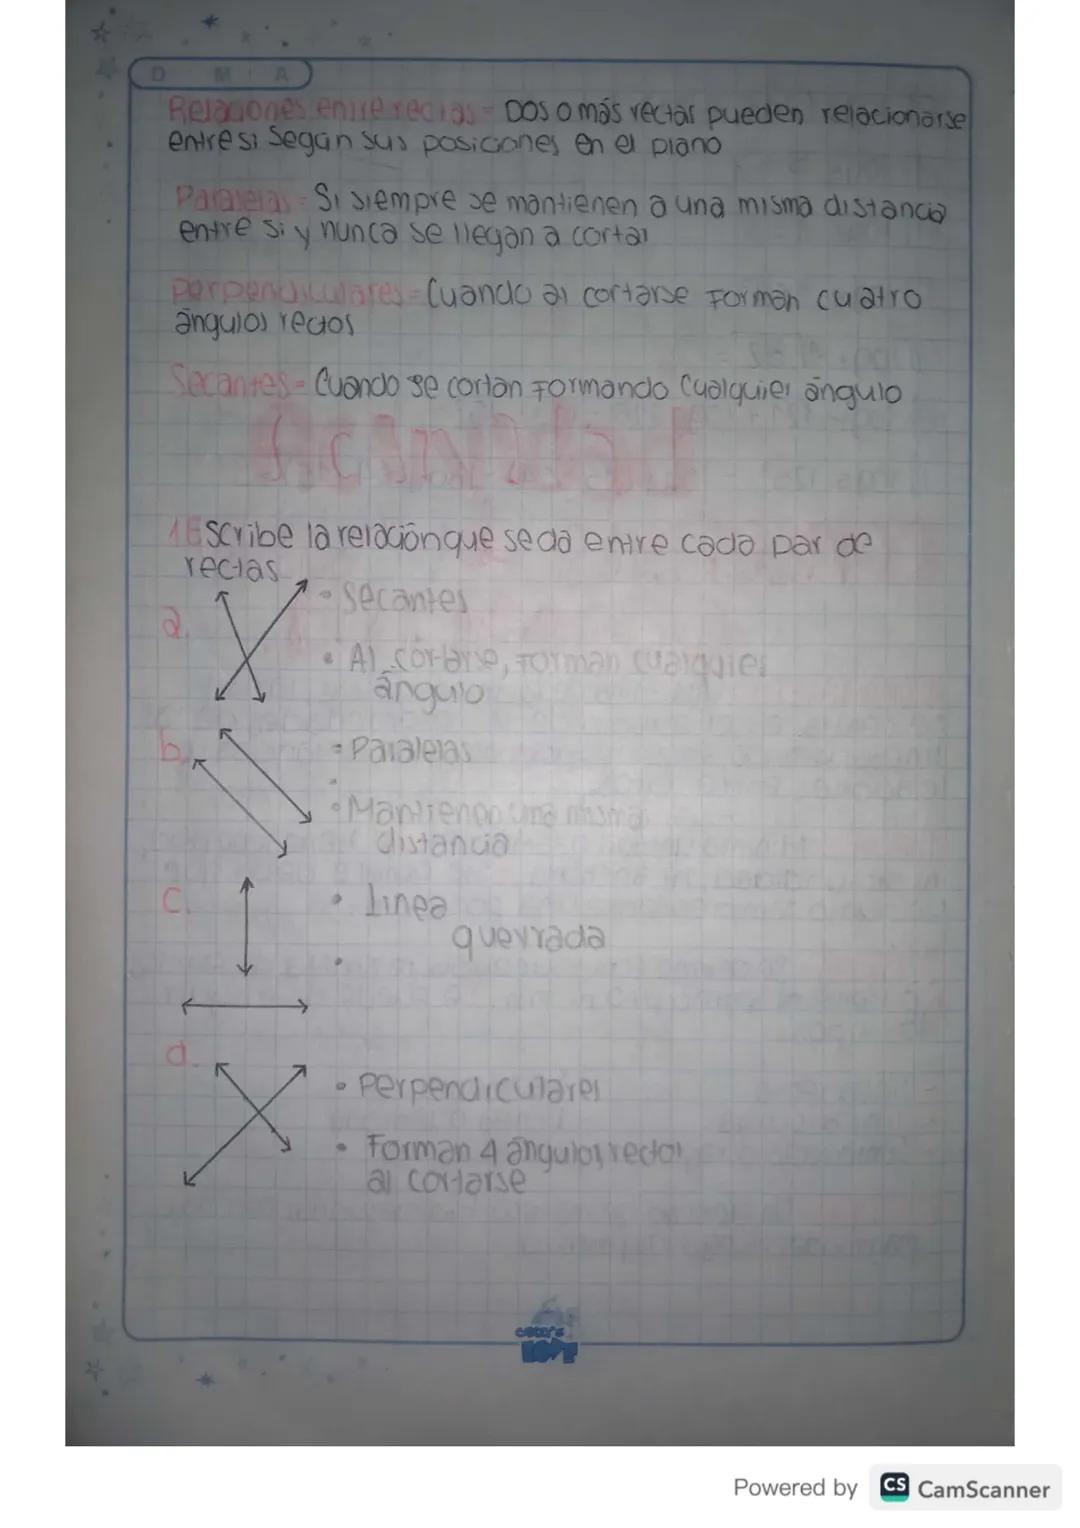 D M A
Relaciones entre rectas = Dos o más rectas pueden relacionarse
entre si Según sus posiciones en el plano
Paralelas = Si siempre se mantienen a una misma distancia
entre si y nunca se llegan a cortar
perpendiculares = Cuando al cortarse Forman cuatro
ángulos rectos
Secantes = Cuando se cortan Formando Cualquier ángulo
Actividad
1 Escribe la relación que se da entre cada par de
rectas
a. • Secantes
• Al cortarse, Forman cualquier
ángulo
b. • Paralelas
• Mantienen una misma
distancia
c. • Linea
quevrada
•
d. • Perpendiculares
• Forman 4 ángulos rectos
al cortarse
Powered by CS CamScanner